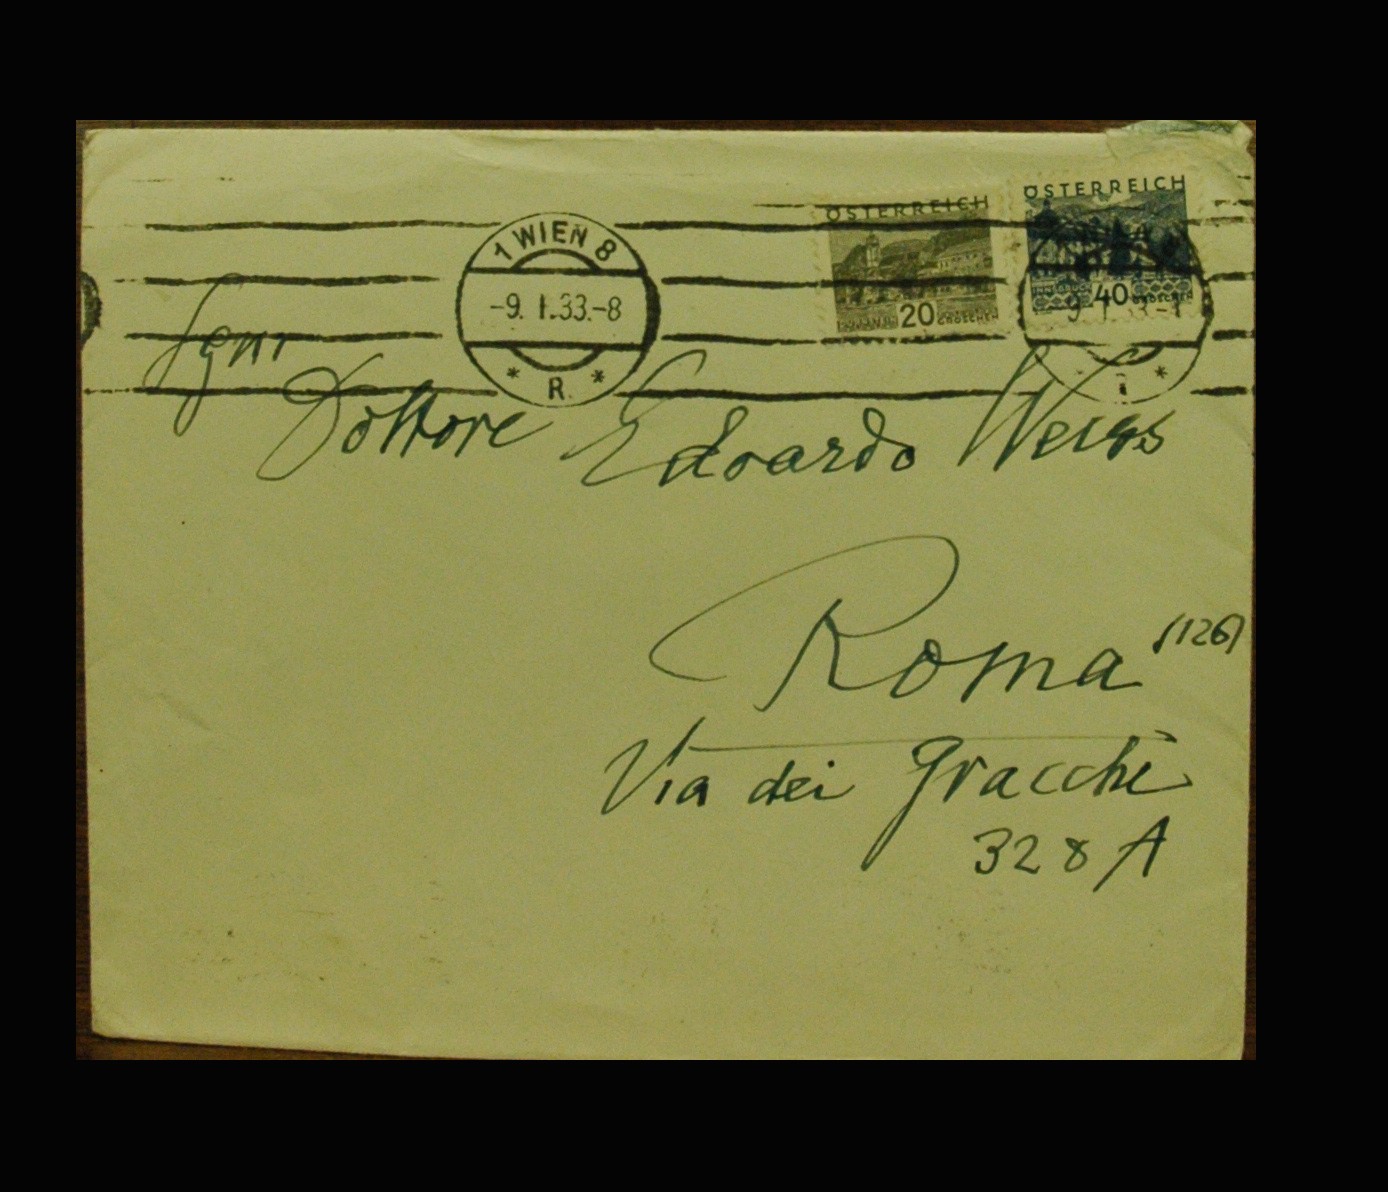 ÖSTERREICH
ÖSTERREICH
1 WIEN 8
-9. I.33.-8
* R *
20 GROSCHEN
INNSBRUCK 40 GROSCHEN
Dottore Edoardo Weiss
Roma (126)
Via dei Gracchi
328 A